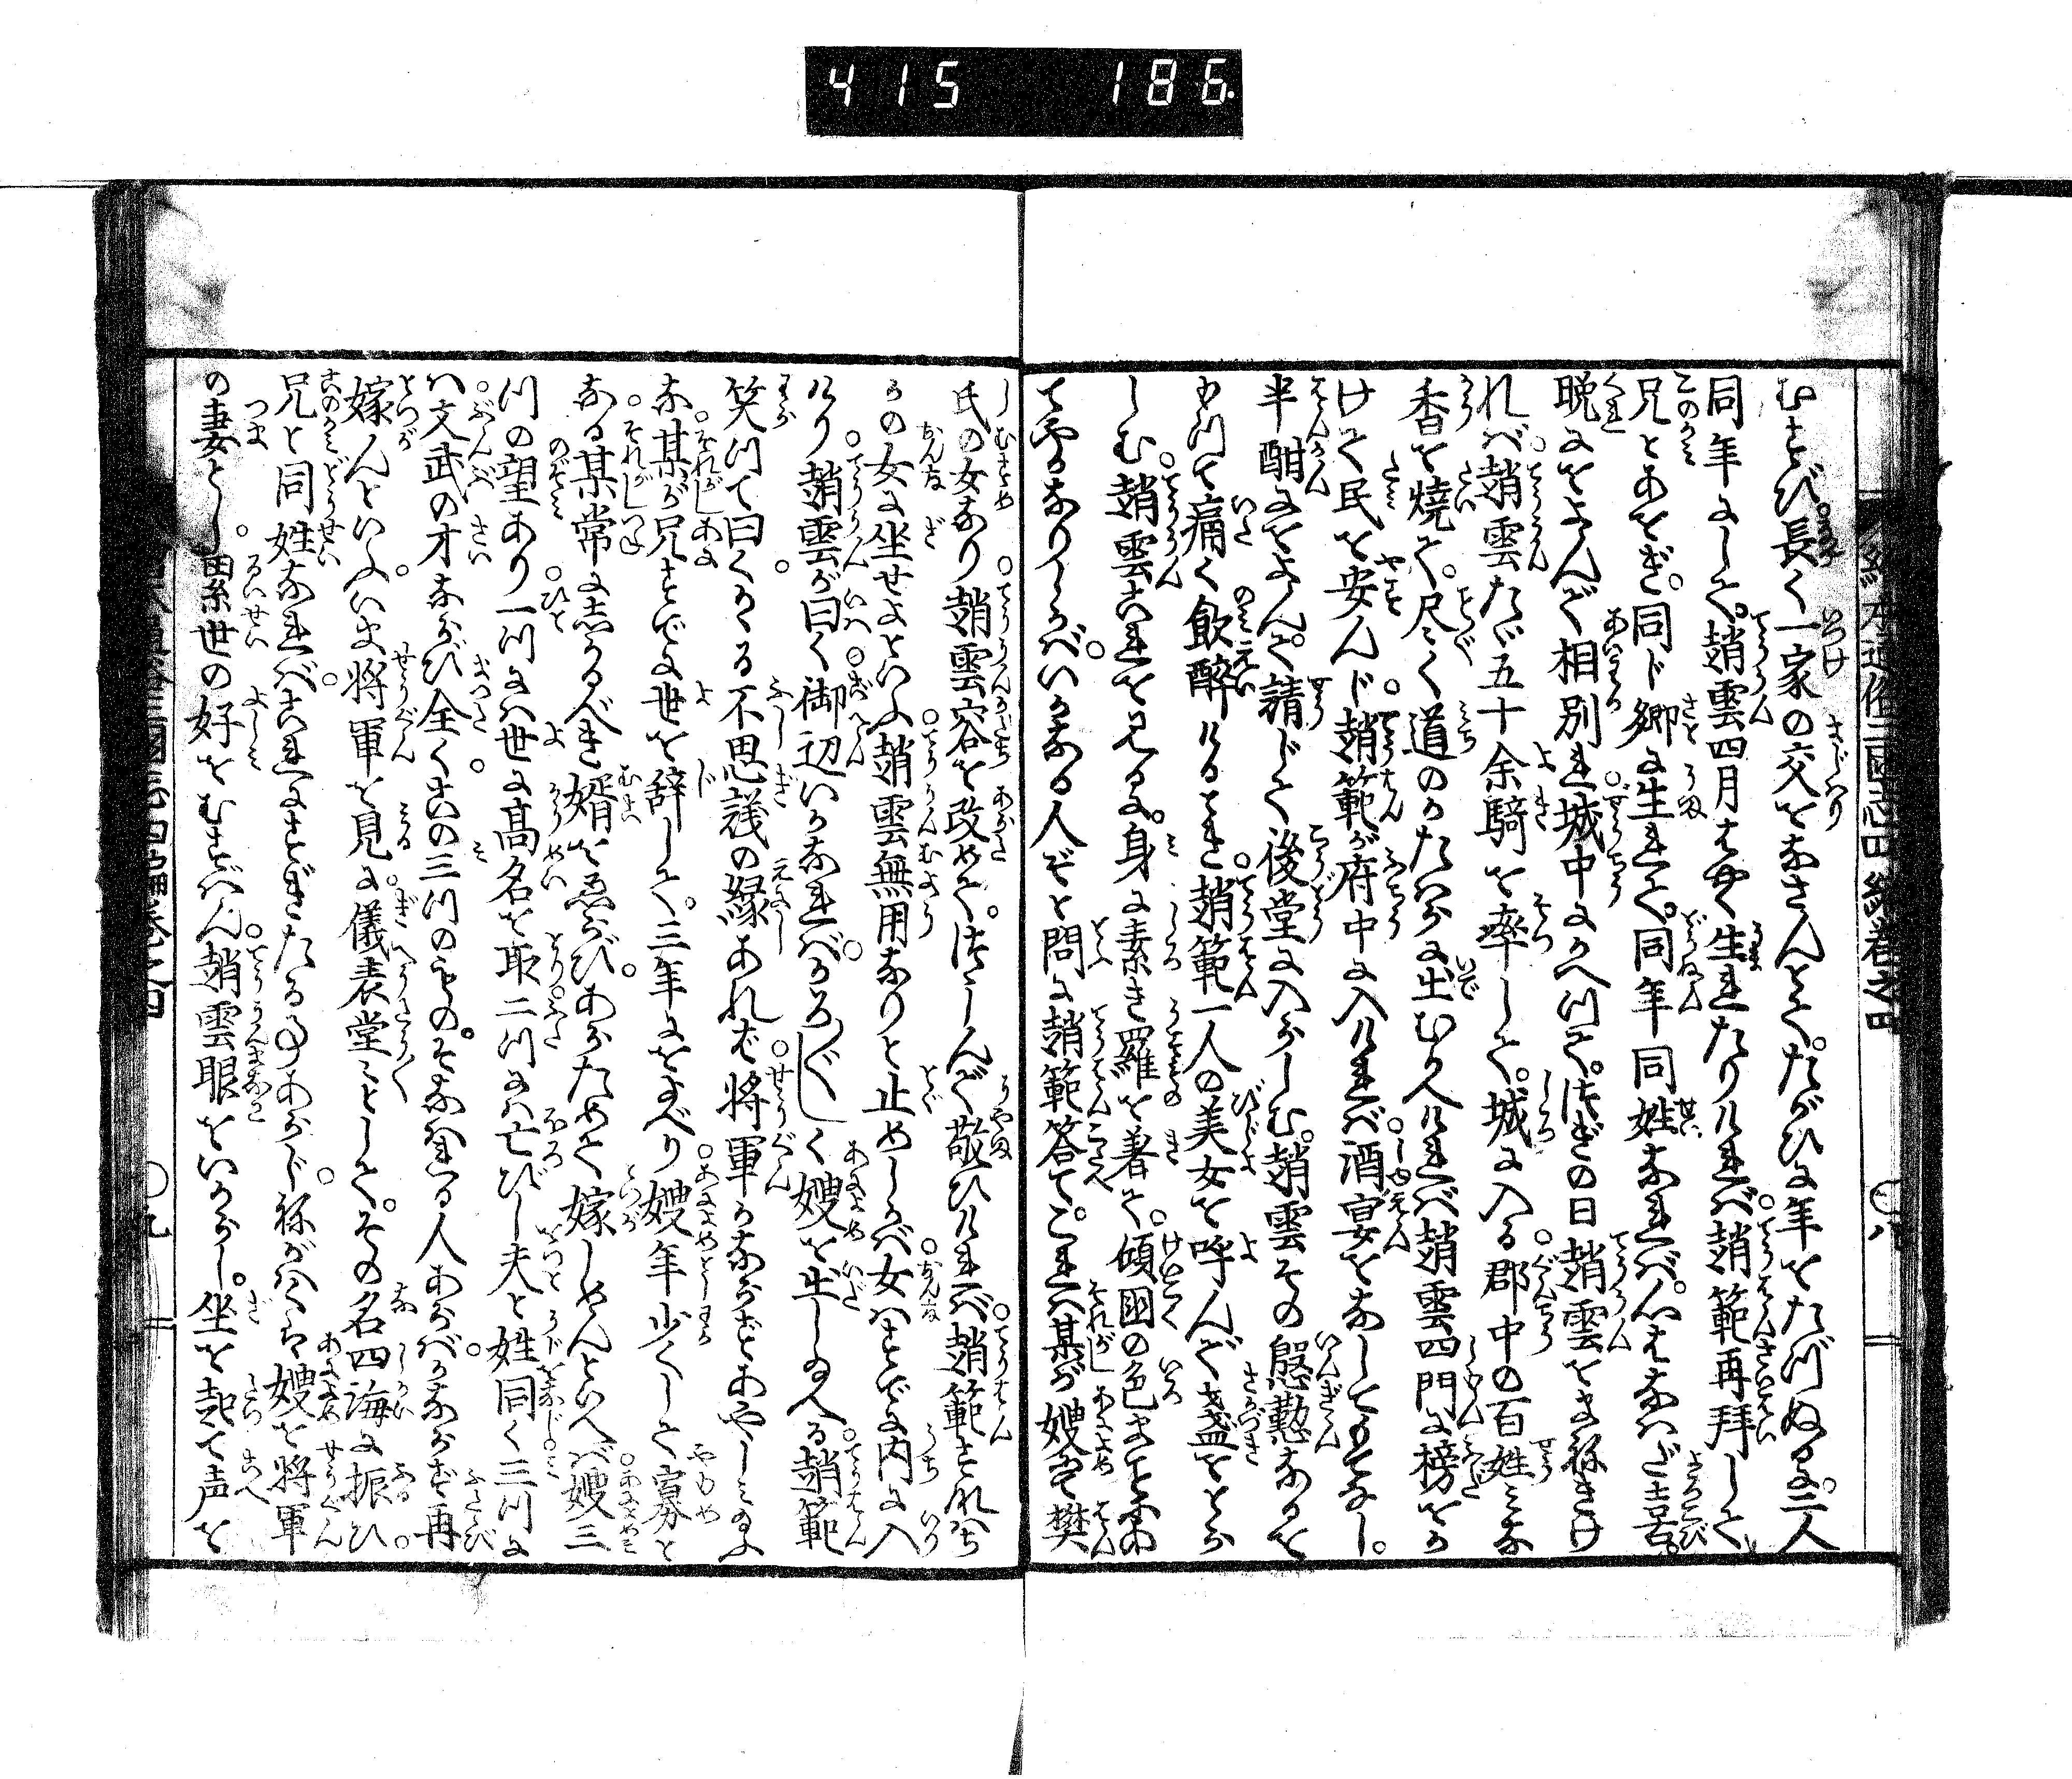 415 186
むすび。長く一家の交をなさんとて。たがひに年をたづぬるに。二人
同年にして。趙雲四月はやく生れたりければ。趙範再拜して
兄とあをぎ。同じ郷に生れて。同年同姓なれば。心はなはだ喜
晩にをよんで相別れ城中にかへつて。つぎの日趙雲をまねきけ
れば。趙雲たゞ五十余騎を率して。城に入る。郡中の百姓みな
香を焼て。尽く道のかたはらに出むかへければ趙雲四門に榜をか
けて民を安んじ。趙範が府中に入ければ。酒宴をなしてもてなし。
半酣にをよんで請じて後堂に入らしむ。趙雲その慇懃なるを
もつて痛く飲醉けるとき。趙範一人の美女を呼んで盞をとら
しむ。趙雲これを見るに。身に素き羅を着て。傾国の色まことに
てやるなりしかば。いかなる人ぞと問に趙範答て。これハ某が嫂にて樊
氏の女なり。趙雲容を改めて。つゝしんで敬ひければ。趙範すなはち
かの女に坐せよといふ。趙雲無用なりと止めしかば。女はすでに内に入
けり。趙雲が曰く。御辺いかなれば。かろ〴〵しく嫂を出し給へる。趙範
笑つて曰く。かゝる不思議の縁あれば。将軍かならずあやしみ給ふ
な。某が兄すでに世を辞して。三年にをよべり。嫂年少くして寡と
なる。某常にしかるべき婿をゑらび。あらためて嫁しめんといへば。嫂三
つの望あり。一つには世に高名を取。二つには亡びし夫と姓同く。三つに
ハ文武の才ならび全く。この三つのもの。そなはる人あらば。かならず再
嫁んといふ。いま将軍を見に。儀表堂〻として。その名四海に振ひ。
兄と同姓なれば。これにすぎたる事あらじ。ねがハくは嫂を将軍
の妻とし。累世の好をむすばん。趙雲眼をいからし。坐を起て声を